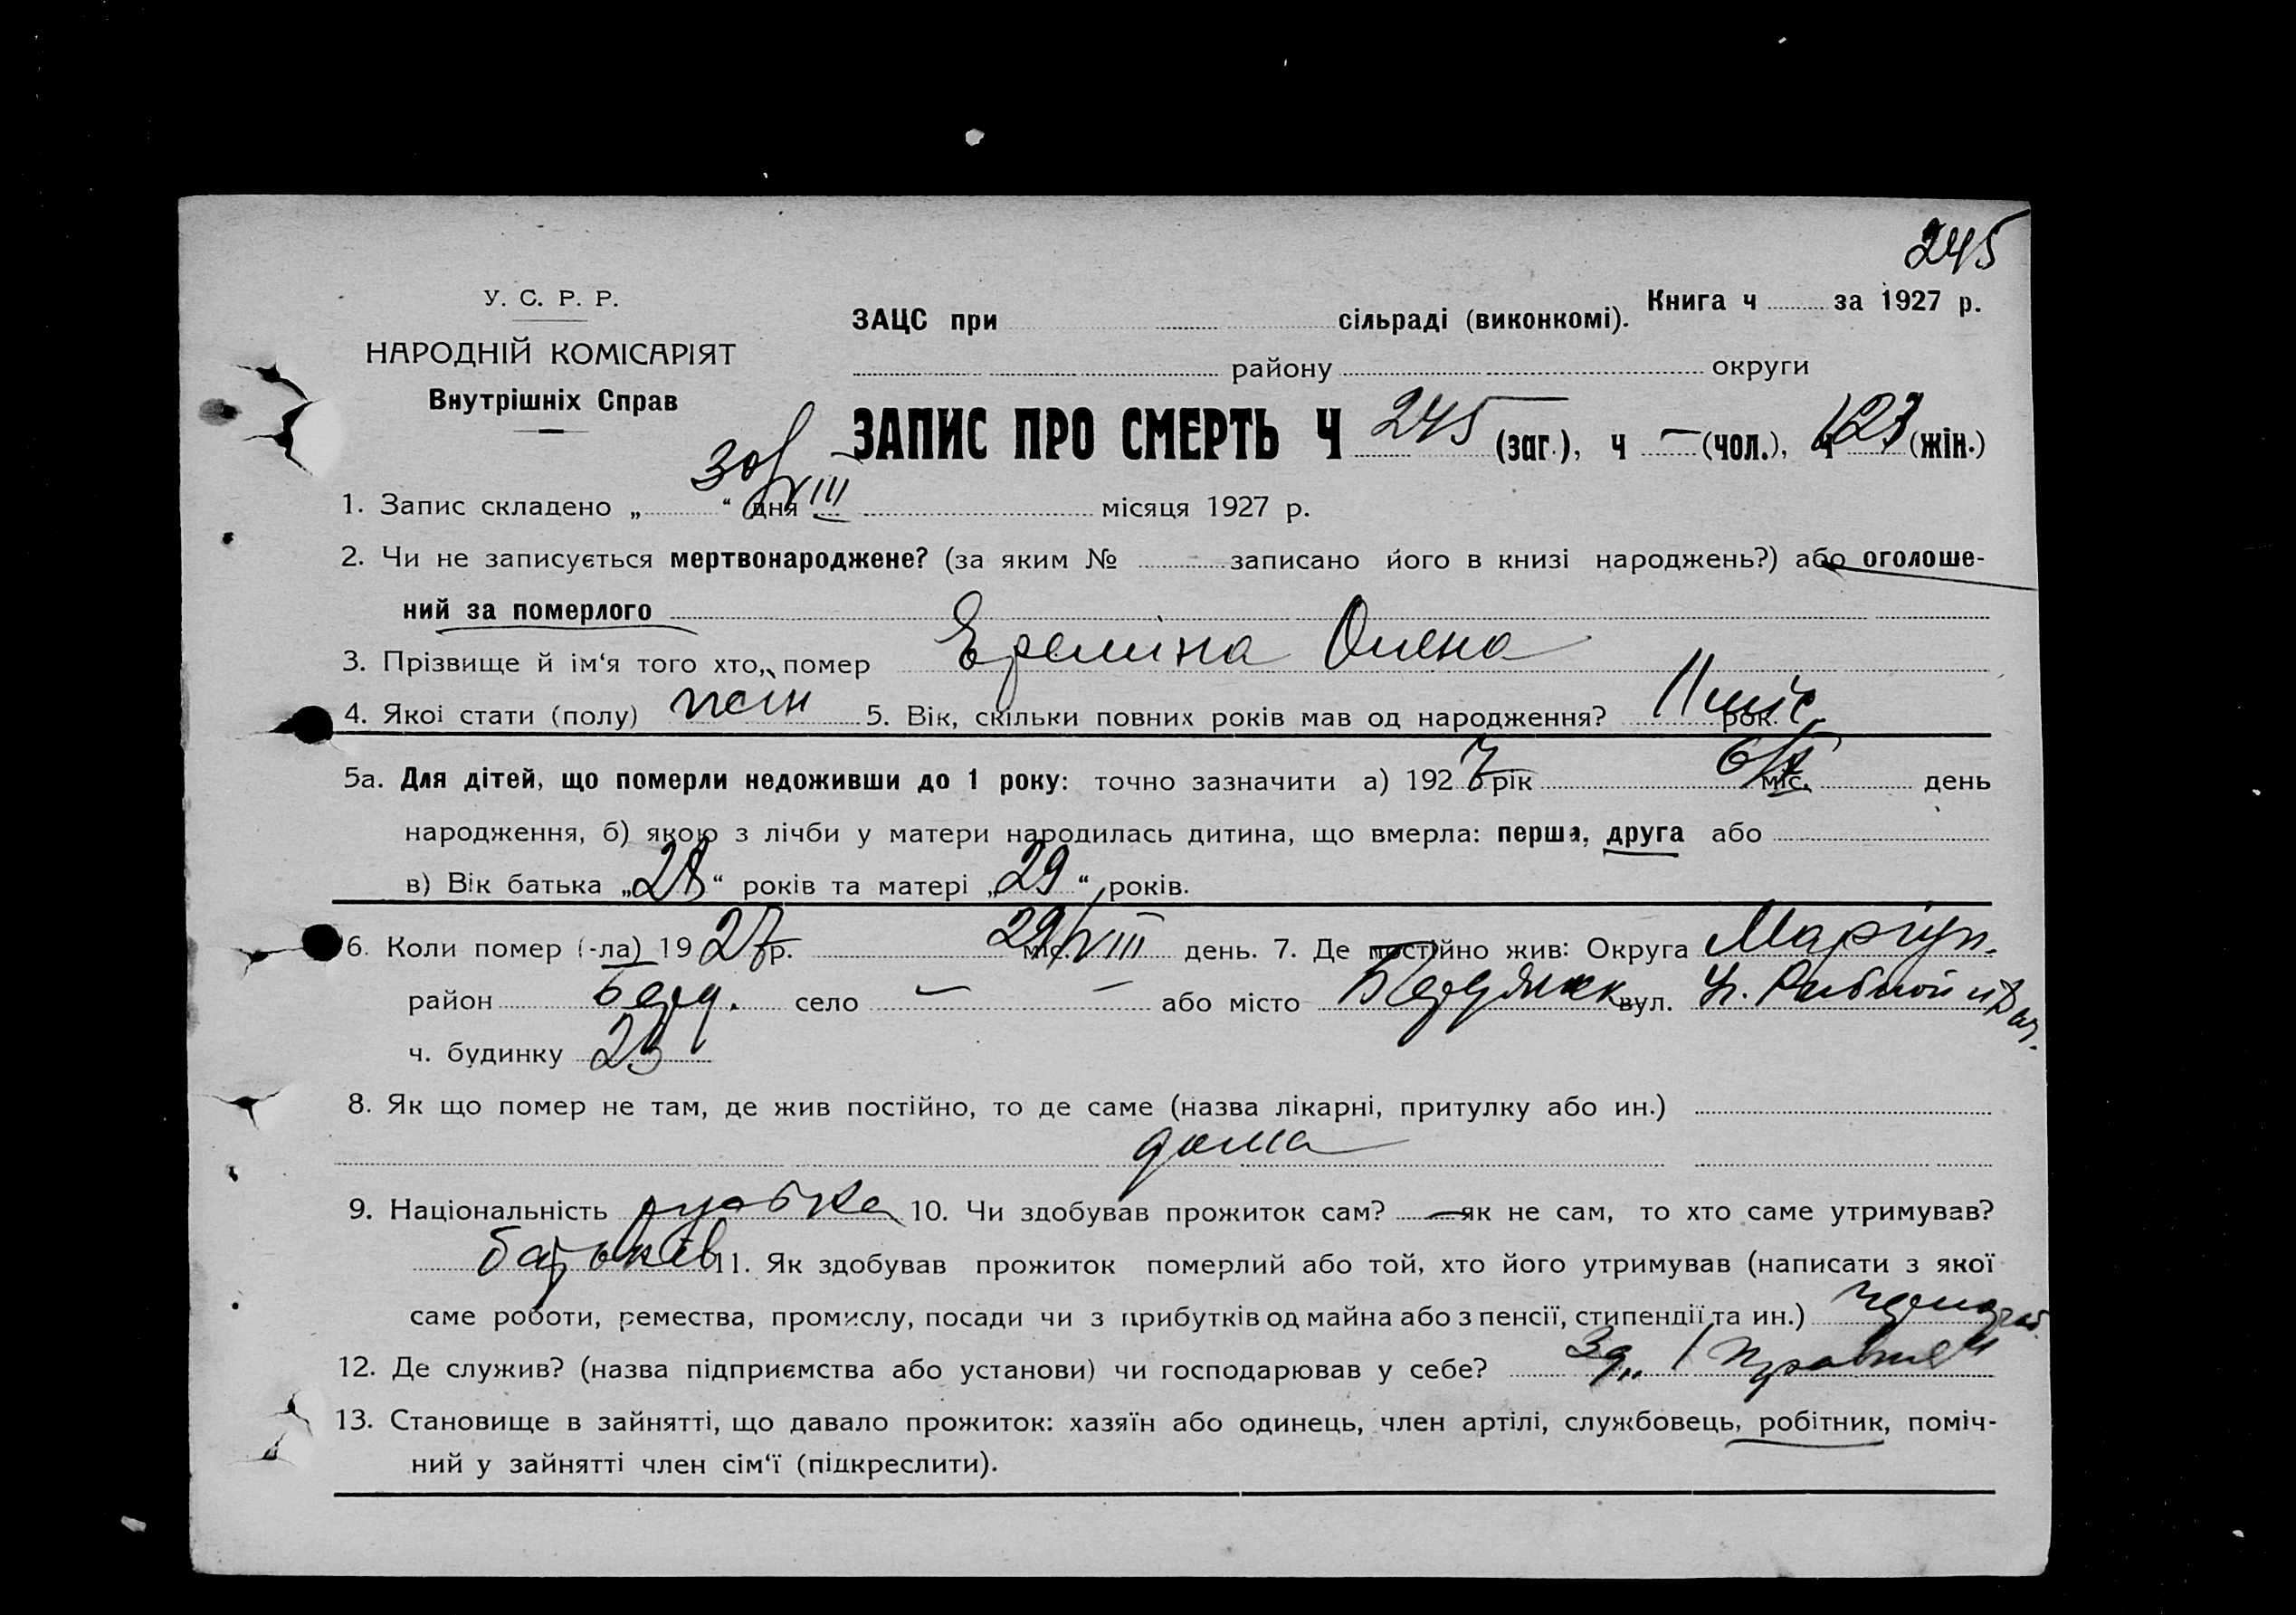 245
У. С. Р. Р.
НАРОДНІЙ КОМІСАРІЯТ
Внутрішніх Справ
Книга ч за 1927 р.
ЗАЦС при сільраді (виконкомі).
району округи
ЗАПИС ПРО СМЕРТЬ Ч 245 (заг.), ч — (чол.), ч 127 (жін.)
1. Запис складено „30“ дня VIII місяця 1927 р.
2. Чи не записується мертвонароджене? (за яким № записано його в книзі народжень?) або оголоше-
ний за померлого
3. Прізвище й ім‘я того хто, помер Ереміна Олена
4. Якої стати (полу) жін 5. Вік, скільки повних років мав од народження? 11 міс. рок.
5а. Для дітей, що померли недоживши до 1 року: точно зазначити а) 192 рік 6/X міс. день
народження, б) якою з лічби у матери народилась дитина, що вмерла: перша, друга або
в) Вік батька „28“ років та матері „29“ років.
6. Коли помер (-ла) 1927 р. 29/VIII міс. день. 7. Де постійно жив: Округа Маріуп.
район Берд. село — — або місто Бердянск вул.
ч. будинку 23
8. Як що помер не там, де жив постійно, то де саме (назва лікарні, притулку або ин.)
дома
9. Національність руська 10. Чи здобував прожиток сам? — як не сам, то хто саме утримував?
батьків 11. Як здобував прожиток померлий або той, хто його утримував (написати з якої
саме роботи, ремества, промислу, посади чи з прибутків од майна або з пенсії, стипендії та ин.)
12. Де служив? (назва підприємства або установи) чи господарював у себе?
13. Становище в зайнятті, що давало прожиток: хазяїн або одинець, член артілі, службовець, робітник, поміч-
ний у зайнятті член сім‘ї (підкреслити).